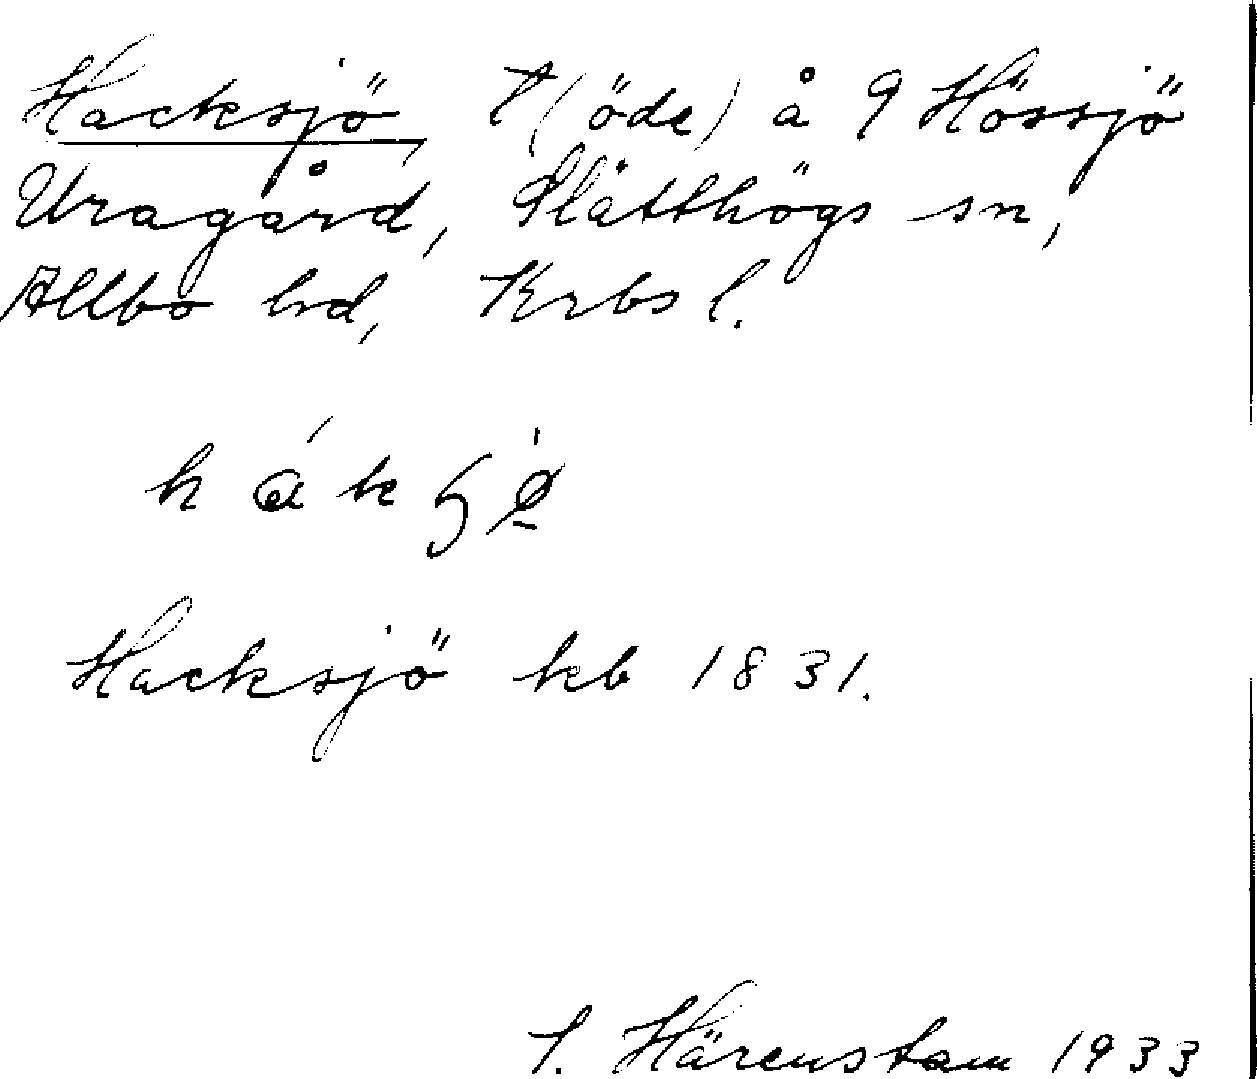 Hacksjö, t (öde) å 9 Hössjö
Uragård, Slätthögs sn,
Allbo hd, Krbs l.
Hacksjö kb 1831.
S. Härenstam 1933